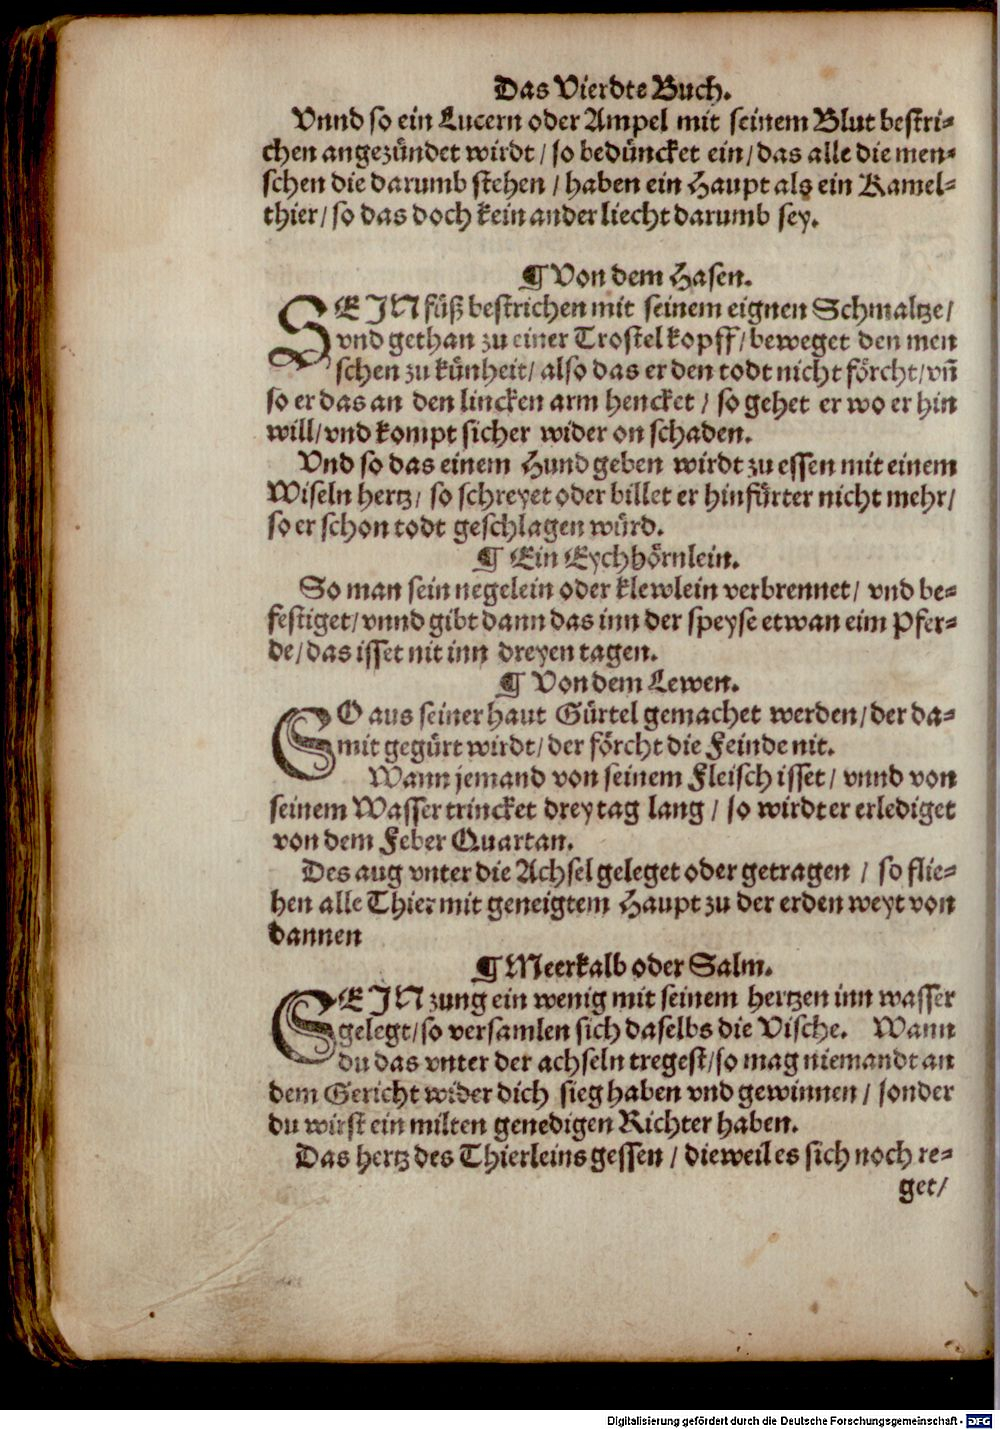 Das Vierdte Buch.
Vnnd so ein Lucern oder Ampel mit seinem Blut bestri-
chen angezündet wirdt / so bedüncket ein / das alle die men-
schen die darumb stehen / haben ein Haupt als ein Kamel-
thier / so das doch kein ander liecht darumb sey.
¶ Von dem Hasen.
SEIN füß bestrichen mit seinem eignen Schmaltze /
vnd gethan zu einer Trostel kopff / beweget den men
schen zu künheit / also das er den todt nicht förcht / vñ
so er das an den lincken arm hencket / so gehet er wo er hin
will / vnd kompt sicher wider on schaden.
Vnd so das einem Hund geben wirdt zu essen mit einem
Wiseln hertz / so schreyet oder billet er hinfürter nicht mehr /
so er schon todt geschlagen würd.
¶ Ein Eychhörnlein.
So man sein negelein oder klewlein verbrennet / vnd be-
festiget / vnnd gibt dann das inn der speyse etwan eim Pfer-
de / das isset nit inn dreyen tagen.
¶ Von dem Lewen.
SO aus seiner haut Gürtel gemachet werden / der da-
mit gegürt wirdt / der förcht die Feinde nit.
Wann jemand von seinem Fleisch isset / vnnd von
seinem Wasser trincket drey tag lang / so wirdt er erlediget
von dem Feber Quartan.
Des aug vnter die Achsel geleget oder getragen / so flie-
hen alle Thier mit geneigtem Haupt zu der erden weyt von
dannen
¶ Meerkalb oder Salm.
SEIN zung ein wenig mit seinem hertzen inn wasser
gelegt / so versamlen sich daselbs die Vische. Wann
du das vnter der achseln tregest / so mag niemandt an
dem Gericht wider dich sieg haben vnd gewinnen / sonder
du wirst ein milten genedigen Richter haben.
Das hertz des Thierleins gessen / dieweil es sich noch re-
get /
Digitalisierung gefördert durch die Deutsche Forschungsgemeinschaft - DFG